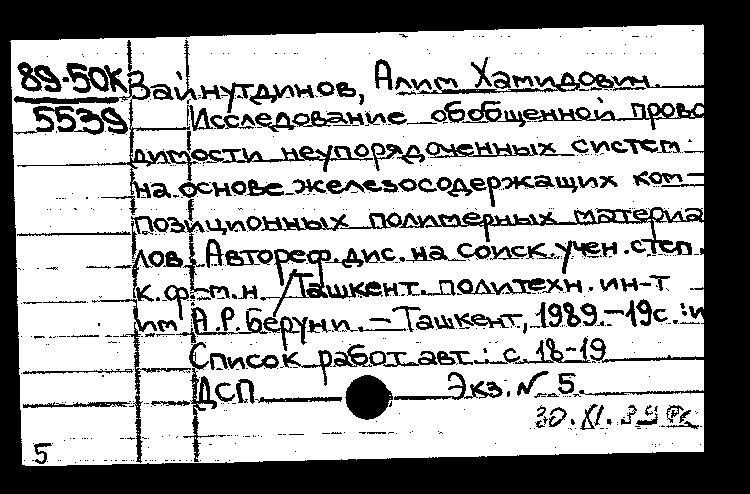 89-50К Зайнутдинов, Алим Хамидович.
5539 Исследование обобщенной прово
димости неупорядоченных систем
на основе железосодержащих ком-
позиционных полимерных материа
лов: Автореф. дис. на соиск. учен. степ.
к.ф-м.н. / Ташкент. политехн. ин-т
им А.Р. Беруни. – Ташкент, 1989. – 19с. : и
Список работ авт.: с. 18-19
ДСП Экз. № 5.
30.XI.
5